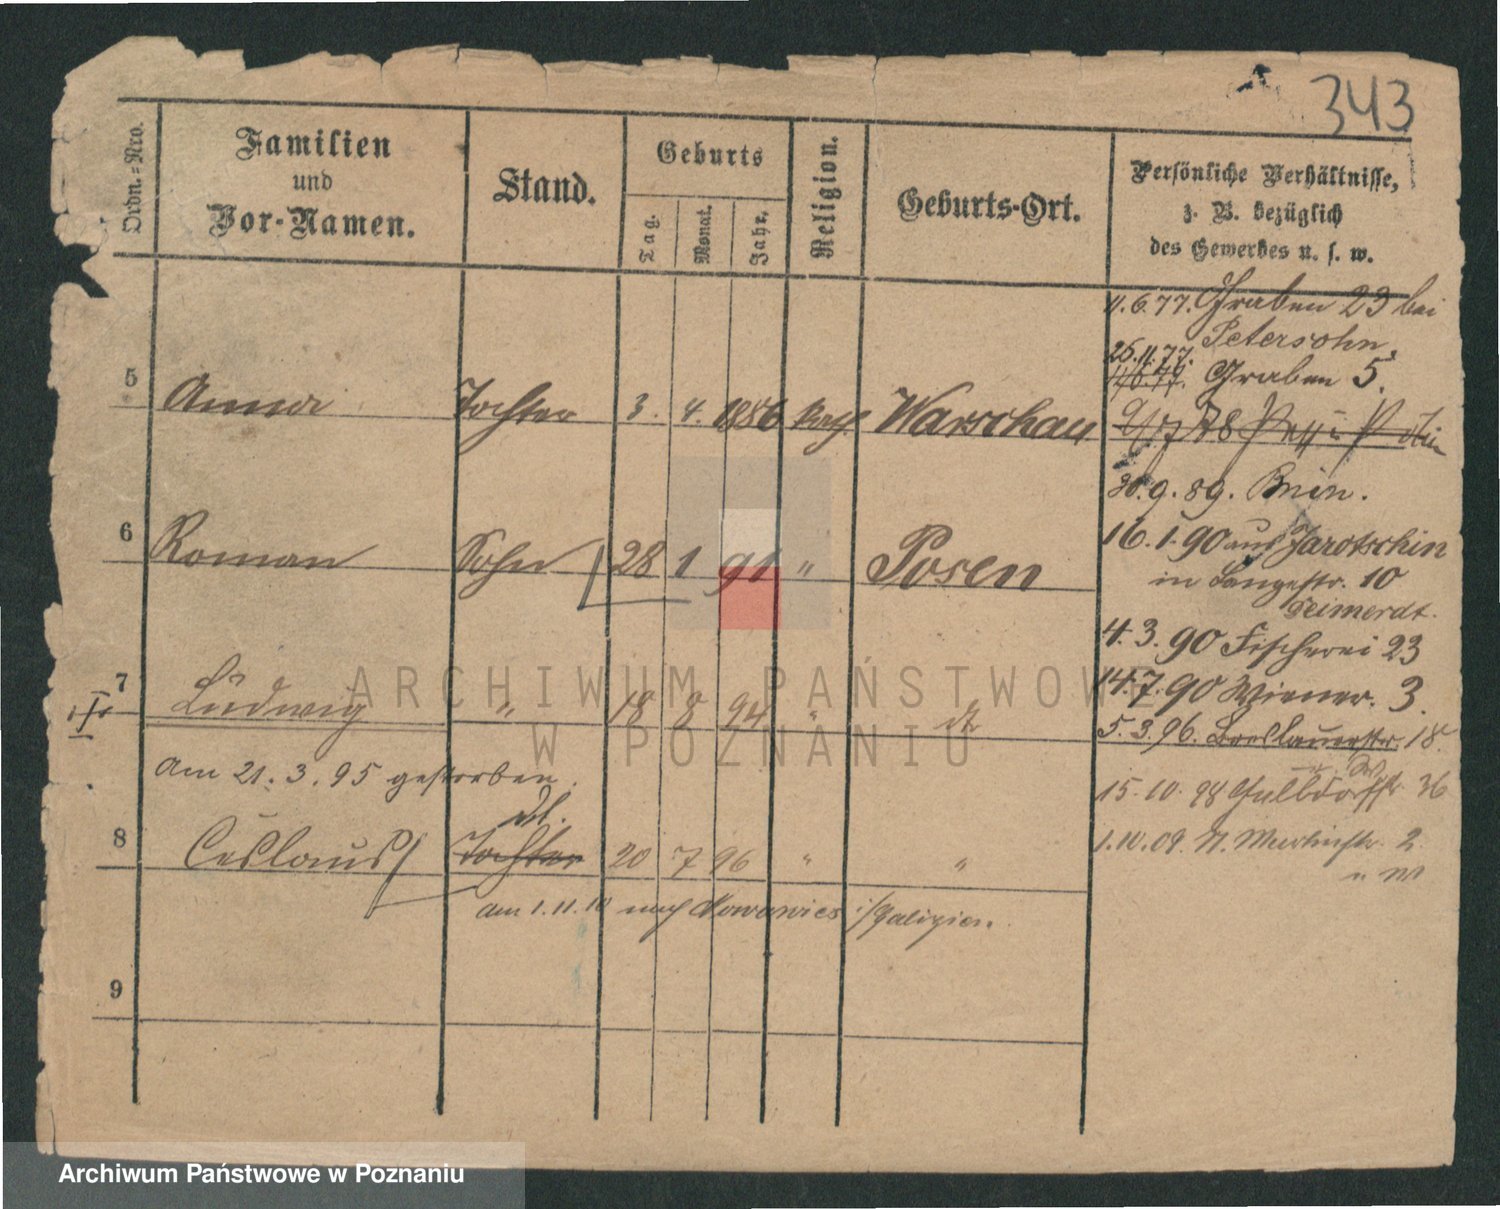 343
Ordn.=Nro.
Familien
und
Vor-Namen.
Stand.
Geburts
Tag.
Monat.
Jahr.
Religion.
Geburts-Ort.
Persönliche Verhältnisse,
z. B. bezüglich
des Gewerbes u. s. w.
11.6.77. Graben 23 bei
Petersohn
26.11.77.
Graben 5.
5 Anna Tochter 3. 4. 1886 kath. Warschau
20.9.89. Bnin.
6 Roman Sohn 28 1 91 " Posen
16.1.90 aus Jarotschin
in Langestr. 10
4.3.90 Fischerei 23
14.7.90 Wiener. 3.
7 Ludwig " 18 8 94 " dt
5.3.96. Breslauerstr. 18.
am 21.3.95 gestorben.
15.10.98 36
8 Ceslaus Tochter 20 7 96 " "
1.10.09. St. Martinstr. 2
am 1.11.10 nach i/Galizien.
9
ARCHIWUM PAŃSTWOWE
W POZNANIU
Archiwum Państwowe w Poznaniu